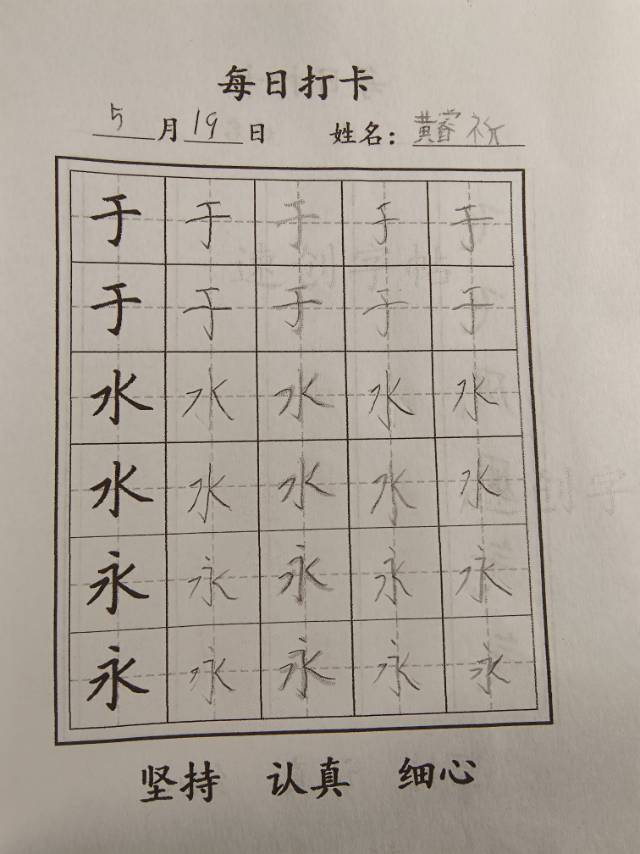 每日打卡
5月19日 姓名：黄睿
于 于 于 于 于
于 于 于 于 于
水 水 水 水 水
水 水 水 水 水
永 永 永 永 永
永 永 永 永 永
坚持 认真 细心